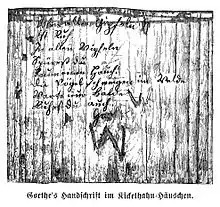 Ueber allen Gipfeln
Ist Ruh
In allen Wipfeln
Spürest du
Kaum einen Hauch
die Vögel schweigen im Walde
Warte nur balde
Ruhest du auch
W
Goethe's Handschrift im Kickelhahn-Häuschen.